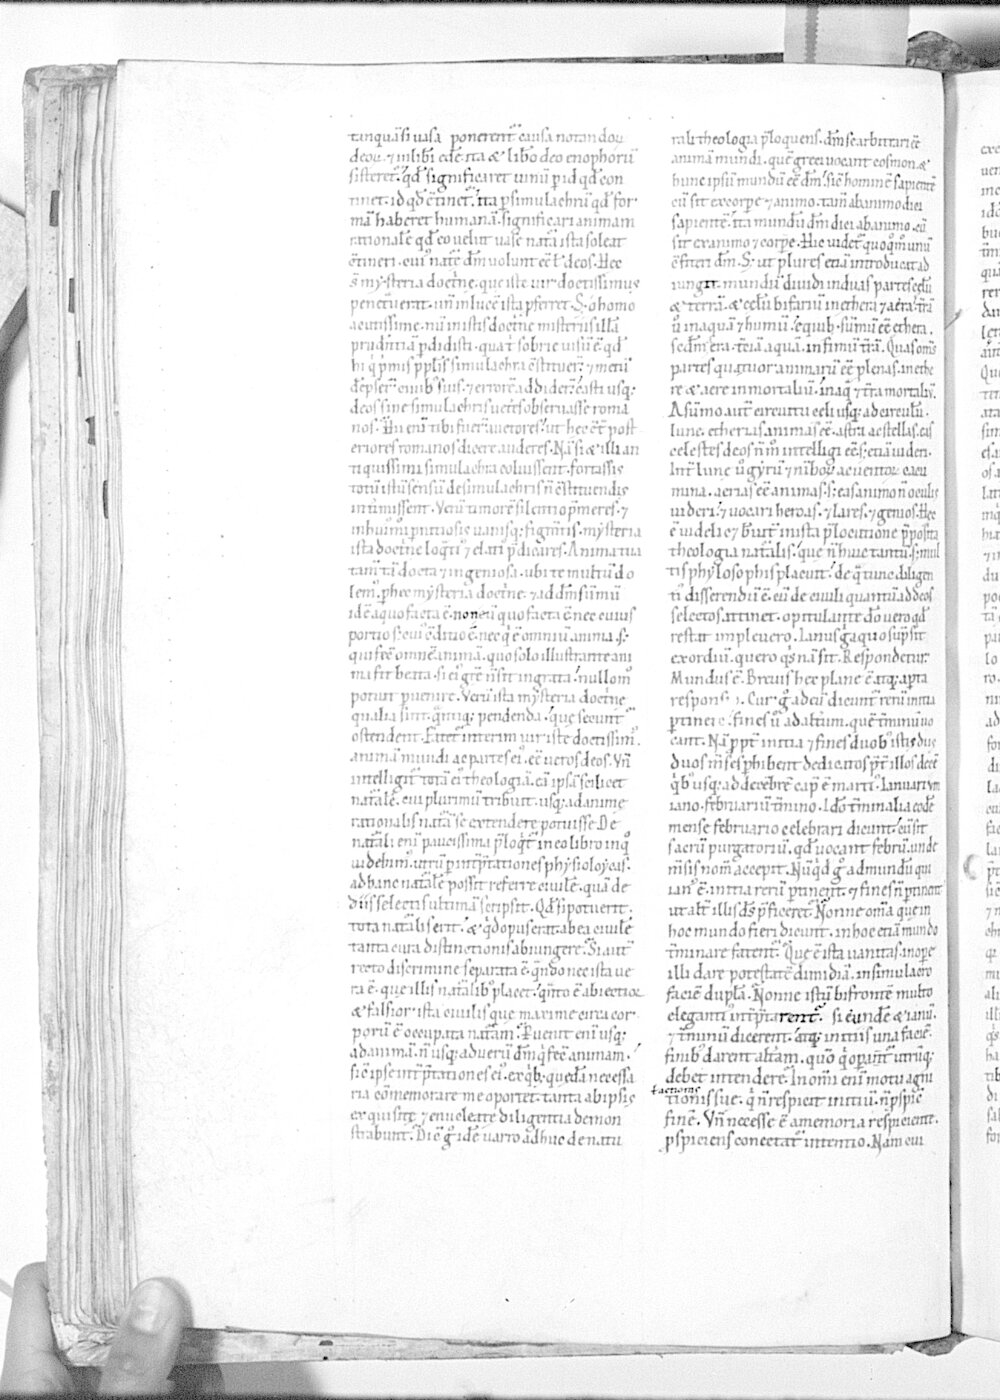 tanquā si uasa ponerent᷑ causa notandoꝝ
deoꝝ. ⁊ in libri ede. ita & libero deo enophorū
sisteret᷑. qđ significaret uinū. ꝑ id qđ con
tinet. id qđ ɔ̃tinet᷑. ita ꝑ simulachrū qđ for
mā haberet humanā. significari animam
rationalē qđ eo uelut uase natā ista soleat
ɔ̃tineri. cui᷒ natē dm̄ uolunt eē ł deos. Hec
s̄ mysteria doctrinę. que iste uir doctissimus
penetuerat. un̄ in lucē ista ꝓferet. S; o homo
acutissime. nū in istis doctrine misteriis illā
prudn̄tiā ꝑdidisti. qua t᷑ sobrie uisū ē. qđ
hi q̇ p̃mi pp̃lis simulachra ɔ̃stituer̄t. ⁊ metū
dēpser̄t ciuib᷒ suis. ⁊ errorē addider̄t. casti usq;
deos sine simulachris uet̃es obseruasse roma
nos. Hii eni t᷑ fuer̄t auctores. ut hec ɔ̃t᷑ post
eriores romanos dicere auderes. Nā si & illi an
tiquissimi simulachra coluissent. fortassis
totū istū sensū de simulachris n̄ ɔ̃stituendis
intimissent. Uerū timore silentio p̃meres. ⁊
in hui᷒mi pnitiosis uanisq; figmtis. mysteria
ista doctrine loq̄t᷑ ⁊ elati᷒ p̃dicares. Anima tua
tam̄ tā docta ⁊ ingeniosa. ubi te multū do
lem᷒. ꝑ hec mysteria doctrine. ⁊ ad dm̄ sūmū
idē a quo facta ē. non cū quo facta ē. nec cuius
portio s; cui᷒ ɔ̃ditio ē. nec q̇ ē omniū anima. s;
qui fecit omnē animā. quo solo illustrante ani
ma fit beata. si ei᷒ gr̄e n̄ sit ingrata. nullom᷒
potuit puenire. Uerū ista mysteria doctrine
qualia sint. q̄ntiq; pendenda. que secunt᷑
ostendent. Fatet᷑ interim uir iste doctissim᷒.
animā mundi ac partes ei᷒. eē ueros deos. Un̄
intelligit᷑ totā ei᷒ theologiā. eā ipsā scilicet
nat̃alē. cui plurimū tribuit. usq; ad anime
rationalis natā se extendere potuisse. De
nat̃ali eni paucissima p̃loqt᷑ in eo libro in q᷒
uidebim᷒. utrū ꝑ int̃p̃tationes physiologicas.
ad hanc nat̃alē possit referre ciuilē. quā de
diis selectis ultimā scripsit. Qđ si potuerit.
tota nat̃alis erit. & qđ opus erat ab ea ciuilē
tanta cura distinctionis abiungere. Si aut̄
recto discrimine separata ē. q̄ndo nec ista ue
ra ē. que illis nat̃alib᷒ placet. q̄nto ē abiectior
& falsior ista ciuilis que maxime circa cor
porū ē occupata natā. Puenit eni usq;
ad animā. n̄ usq; ad uerū dm̄ q̇ fecit animam.
sic̄ ipse int̃p̃tationes ei᷒. ex q̇b; quedā necessa
ria cōmemorare me oportet. tanta ab ipsis
exquisite ⁊ enucleate diligentia demon
strabunt. Dic̄ g̊ idē uarro adhuc de natu
rali theologia p̃loquens. dm̄ se arbitrari eē
animā mundi. quē greci uocant cosmon. &
hunc ipsū mundū eē dm̄. sic̄ hominē sapientē
cū sit ex corpe ⁊ animo. tam̄ ab animo dici
sapientē. ita mundū dm̄ dici ab animo. cū
sit ex animo ⁊ corpe. Hic uidet᷑ quoq;m̊ unū
ɔ̃fiteri dm̄. S; ut plures etiā introducat. ad
iungit. mundū diuidi in duas partes. celū
& terrā. & celū bifariū in ethera ⁊ aera. t̃rā
ū in aquā ⁊ humū. e quib; sūmū eē ethera.
sedm̄ era. tciā aquā. infimū t̃rā. Quas om̄s
partes quatuor animarū eē plenas. in ethe
re & aere inmortaliū. in aq̄ ⁊ t̃ra mortaliū.
A sūmo aut̄ circuitu celi usq; ad circulū
lune. etherias animas eē. astra ac stellas. eas
celestes deos n̄ m̊ intelligi eē. s; etiā uideri.
Int̃ lune ū gyrū ⁊ nībor᷒ ac uentoꝝ cacu
mina. aerias eē animas. s; eas animo n̄ oculis
uideri. ⁊ uocari heroas. ⁊ lares. ⁊ genios. Hec
ē uidelic̄ ⁊ breuit᷑ in ista p̃locutione p̃posita
theologia nat̃alis. que n̄ huic tantū. s; mul
tis phylosophis placuit. de q̇ tunc diligen
ti᷒ disserendū ē. cū de ciuili quantū ad deos
selectos attinet. opitulante dō uero qđ
restat impleuero. Ianus g̊ a quo sūpsit
exordiū. quero q̇s nā sit. Respondetur.
Mundus ē. Breuis hec plane ē atq; apta
responsio. Cur g̊ ad eū dicunt᷑ rerū initia
ptinere. fines ū ad alterū. quē t̃minū uo
cant. Nā ppt̃ initia ⁊ fines duob᷒ istis diis
duos m̄ses phibent dedicatos pt̃ illos decē
q̇b᷒ usq; ad decēbrē cap̃ ē marti᷒. Ianuariū
iano. februariū t̃mino. Iđo t̃minalia eodē
mense februario celebrari dicunt. cū fit
sacrū purgatoriū. qđ uocant februū. unde
m̄sis nom̄ accepit. Nūqđ g̊ ad mundū qui
ian᷒ ē. initia rerū ptinent. ⁊ fines n̄ ptinent
ut alt᷑ illis ds̄ p̃ficeret᷑. Nonne om̄ia que in
hoc mundo fieri dicunt. in hoc etiā mundo
t̃minare fatent᷑. Que ē ista uanitas. in opere
illi dare potestatē dimidiā. in simulacro
faciē duplā. Nonne istū bifrontē multo
eleganti᷒ int̃p̃tarent᷑. si eundē & ianū.
⁊ t̃minū dicerent. atq; initiis unā faciē.
finib᷒ darent alterā. quō q̇ opant᷑ utrūq;
debet intendere. In om̄i eni motu acti
factionis
tionis sue. q̇ n̄ respicit initiū. n̄ pspic̄
finē. Un̄ necesse ē a memoria respiciente.
pspiciens conectat᷑ intentio. Nam cui